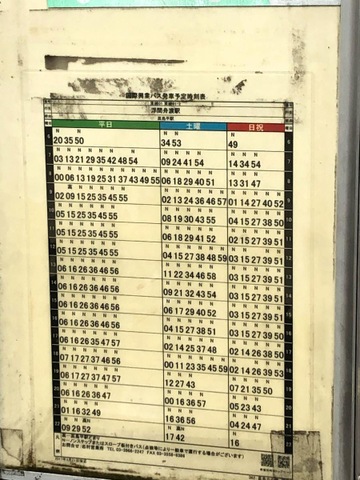 国際興業バス発車予定時刻表
浮間舟渡駅
高島平駅
平日 土曜 日祝
6 20 35 50 34 53 49 6
7 03 13 21 29 35 42 48 54 09 24 41 54 14 34 54 7
8 00 06 13 19 25 31 37 43 49 55 06 18 29 40 51 13 31 47 8
9 02 09 15 25 35 45 55 02 13 24 36 46 57 01 14 27 40 52 9
10 05 15 25 35 45 55 08 19 30 43 55 04 15 27 39 51 10
11 05 15 25 35 45 55 06 18 29 41 52 02 15 27 39 51 11
12 05 15 25 35 45 55 04 15 27 38 48 59 03 15 27 39 51 12
13 06 16 26 36 46 56 11 22 34 46 58 03 15 27 39 51 13
14 06 16 26 36 46 56 09 21 32 43 54 03 15 27 39 51 14
15 06 16 26 36 46 56 06 17 29 40 52 03 15 27 39 51 15
16 06 16 26 36 46 56 04 15 27 38 51 03 15 27 39 51 16
17 06 16 26 36 46 56 02 14 25 37 48 02 14 26 38 50 17
18 07 17 27 37 46 56 00 11 23 35 45 59 02 14 26 38 53 18
19 06 17 27 37 47 57 12 27 43 07 21 35 50 19
20 06 16 26 36 47 00 16 36 57 05 23 43 20
21 01 16 32 49 16 36 56 04 24 47 21
22 09 29 52 17 42 16 22
高…高島平駅まで
N…ノンステップまたはスロープ板付きバス(点検等により一般車で運行する場合がございます)